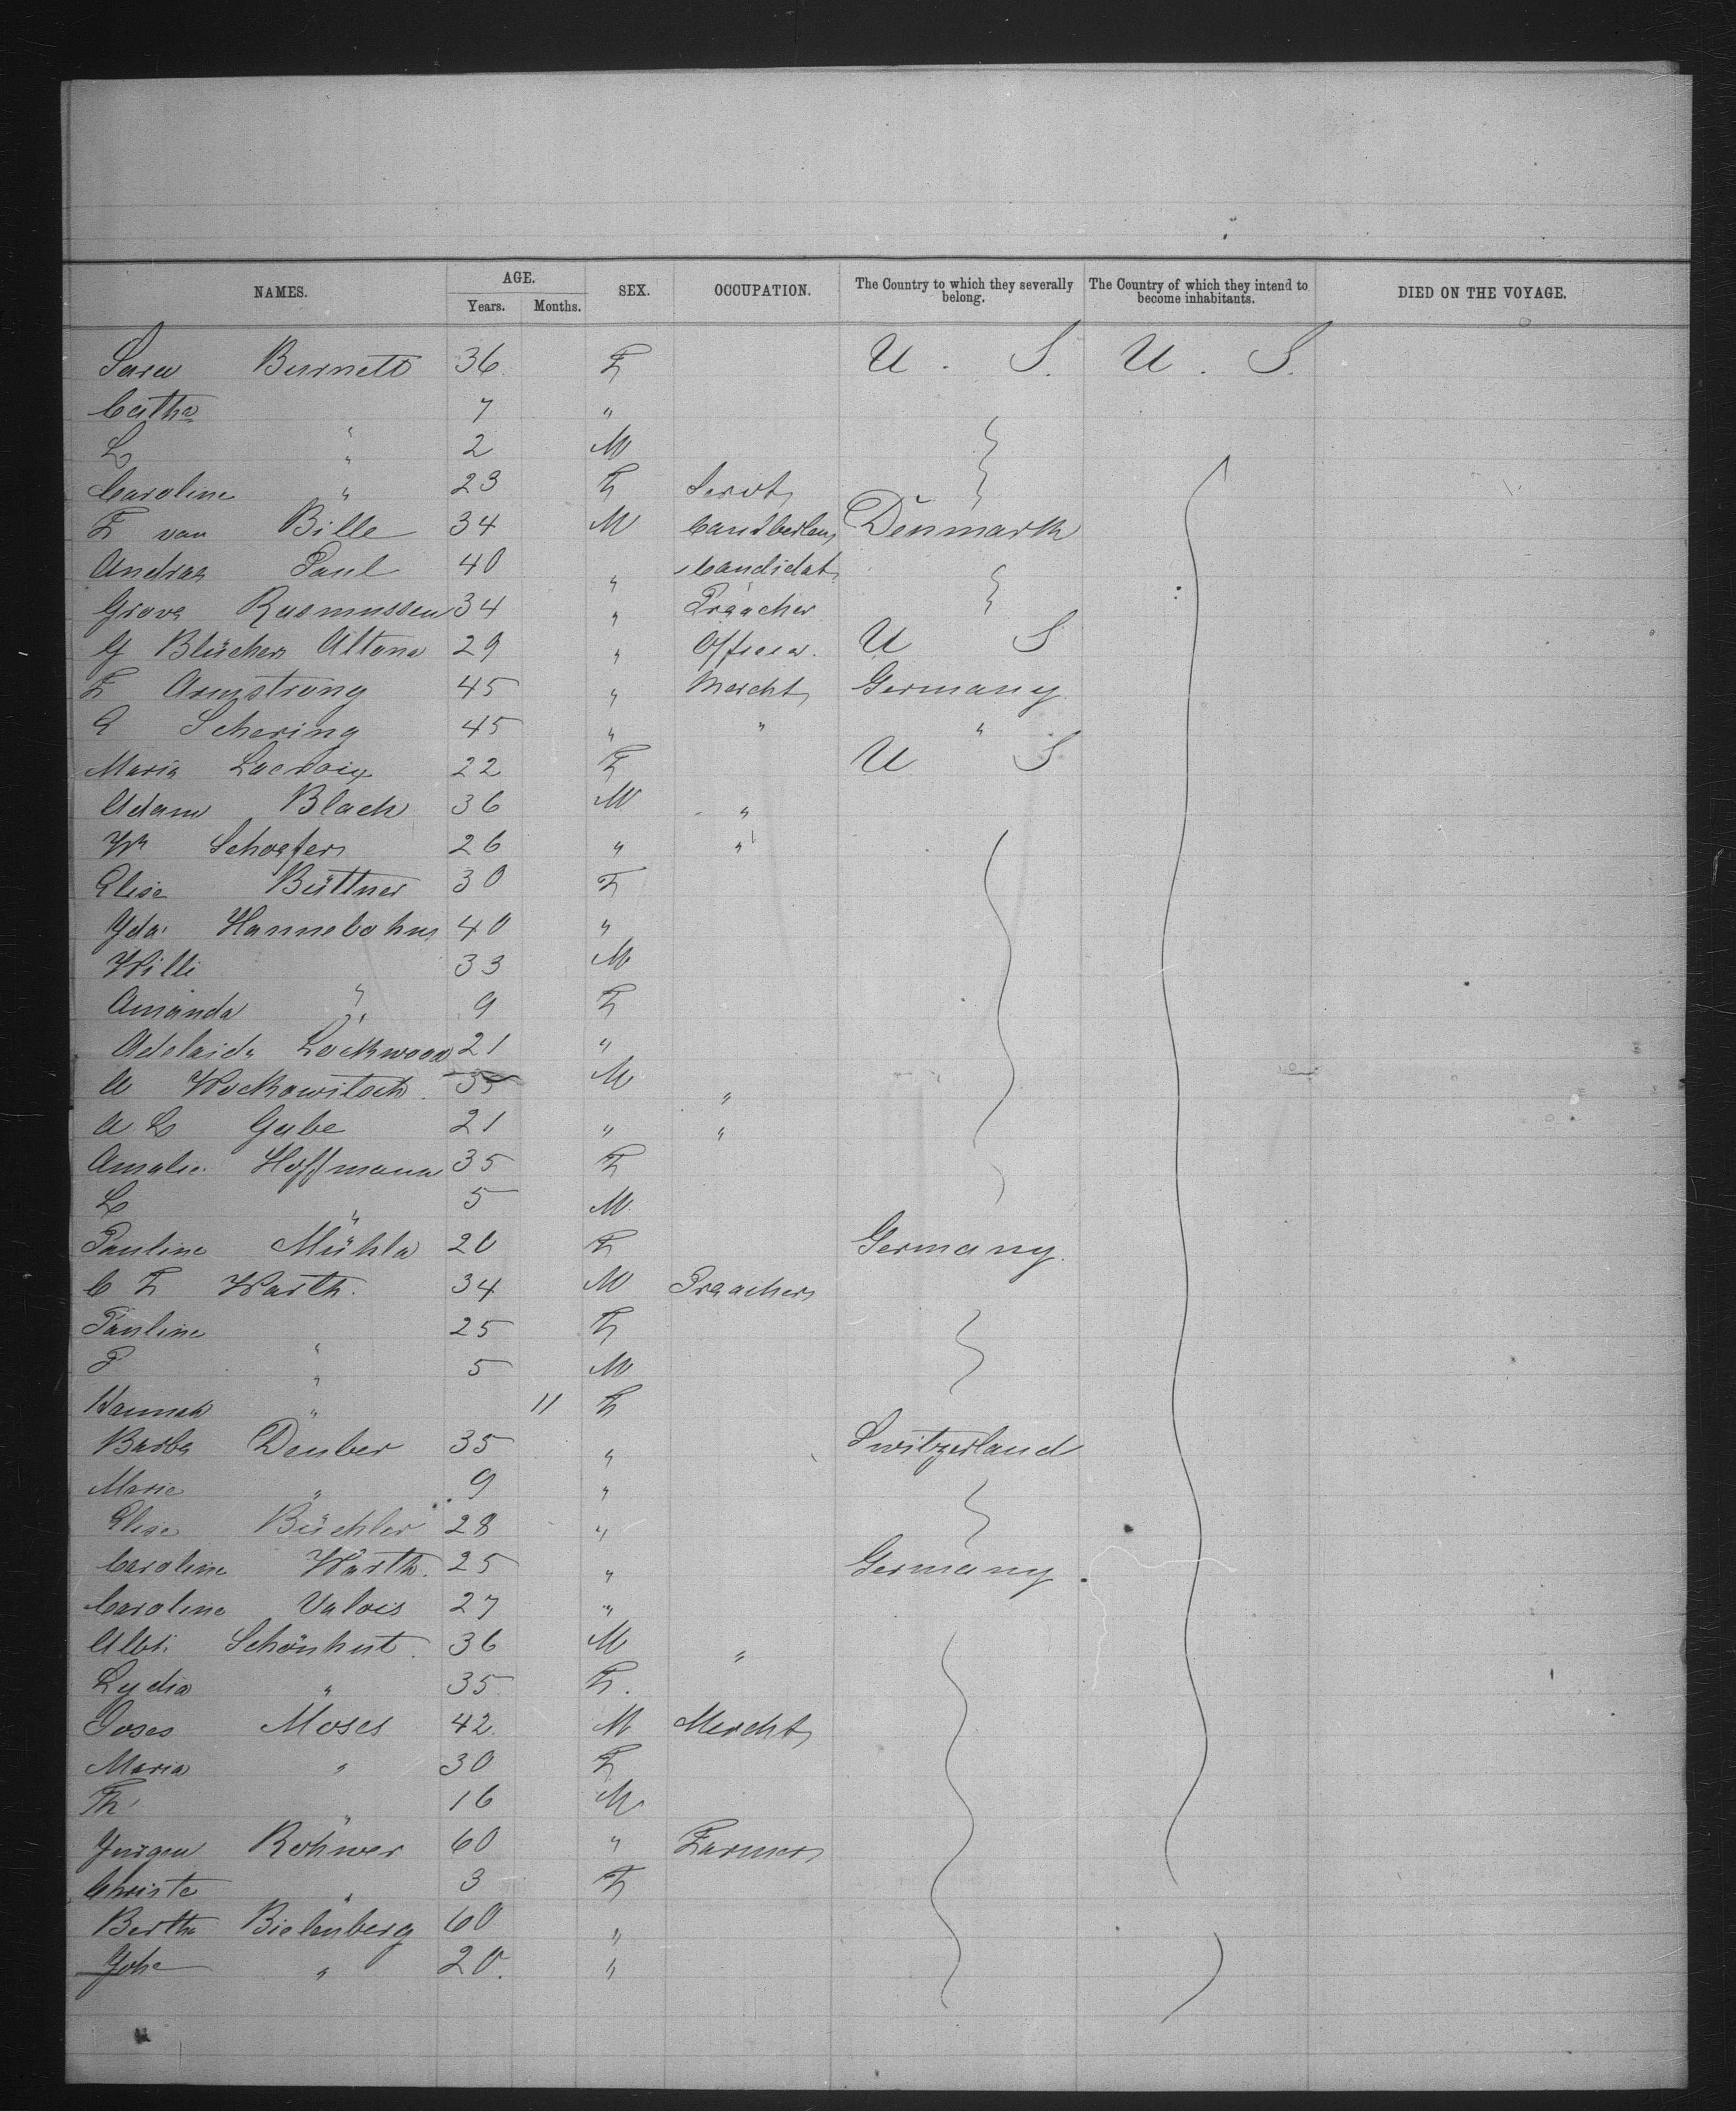 NAMES. AGE. SEX. OCCUPATION. The Country to which they severally belong. The Country of which they intend to become inhabitants. DIED ON THE VOYAGE.
Years. Months.
Sara Burnett 36 F U. S. U. S.
Catha 7 "
L " 2 M
Caroline " 23 F Servt
F van Bille 34 M Denmark
Andrea Paul 40 " Candidat
Grove Rasmussen 34 " Preacher
G Blücher Altona 29 " Officer U S
F Armstrong 45 " Mercht Germany
E Schering 45 " " "
Maria Lacroix 22 F U S
Adam Black 36 M "
Wm Schaefer 26 " "
Elise Büttner 30 F
Yda Hannebohn 40 "
Willi " 33 M
Amanda " 9 F
Adelaide Lockwood 21 "
A Wockowitsch 35 M "
A L Gabe 21 " "
Amalie Hoffmann 35 F
L " 5 M
Pauline Mühle 20 F Germany
C F Warth. 34 M Preacher
Pauline " 25 F
P " 5 M
Hannah " 11 F
Barba Deuber 35 " Switzerland
Marie " 9 "
Elise Büchler 28 "
Caroline Warth. 25 " Germany
Caroline Valois 27 "
Albt. Schönhut. 36 M "
Lydia " 35 F.
Moses 42 M Mercht
Maria " 30 F
Th " 16 M
Jurgen Rohwer 60 " Farmer
Christe " 3 F
Bertha Bielenberg 60 "
Johe " 20. "